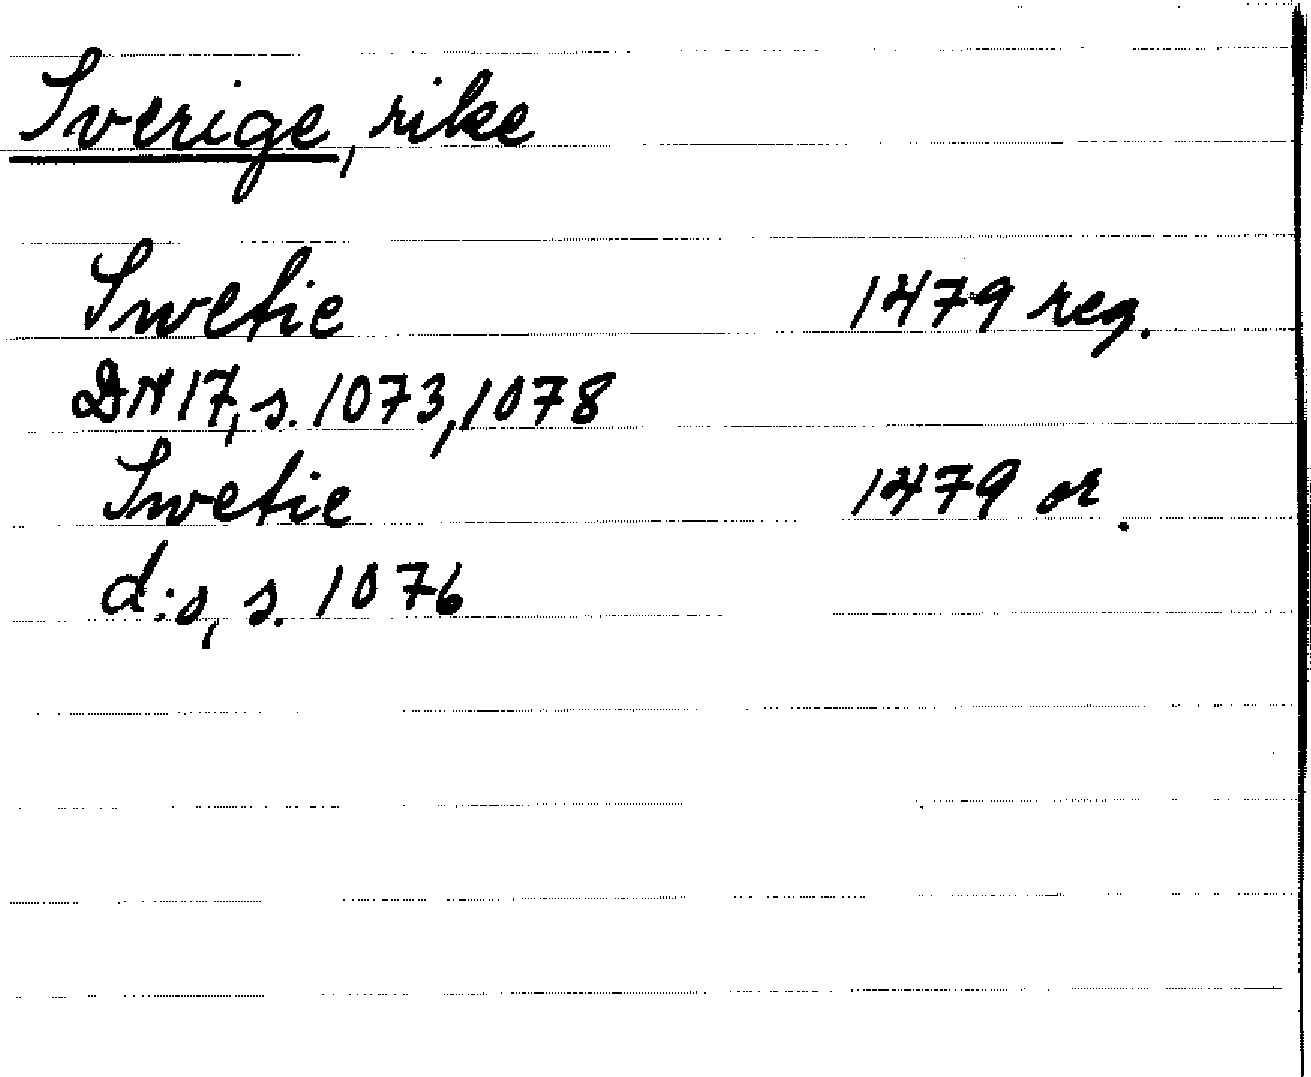 Sverige, rike
Swetie 1479 reg.
DN 17, s. 1073, 1078
Swetie 1479 or.
d:o, s. 1076